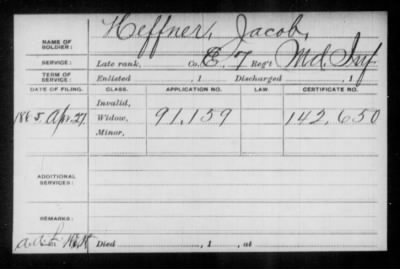 NAME OF SOLDIER: Heffner, Jacob,
SERVICE: Late rank, Co. E, 7 Reg't Md. Inf
TERM OF SERVICE: Enlisted , 1 Discharged , 1
DATE OF FILING. CLASS. APPLICATION NO. LAW. CERTIFICATE NO.
Invalid,
1865 Apr. 27 Widow, 91,159 142,650
Minor,
ADDITIONAL SERVICES:
REMARKS:
Died , 1 , at